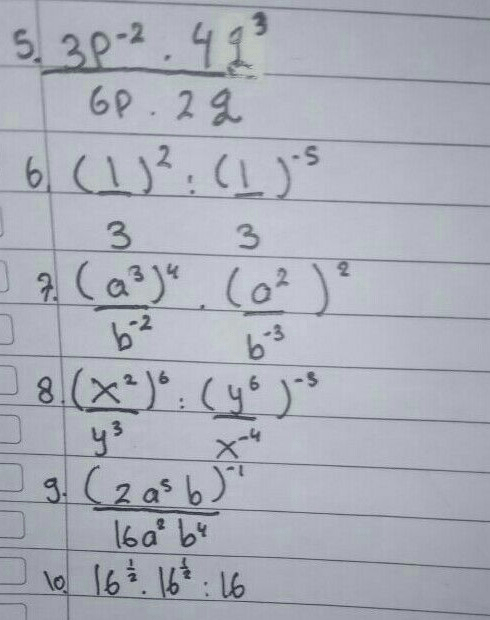 5. 3p⁻² . 4q³
6p . 2q
6. (1)² : (1)⁻⁵
3 3
7. (a³)⁴ . (a²)²
b⁻² b⁻³
8. (x²)⁶ : (y⁶)⁻³
y³ x⁻⁴
9. (2a⁵b)⁻¹
16a²b⁴
10. 16^½ . 16^½ : 16